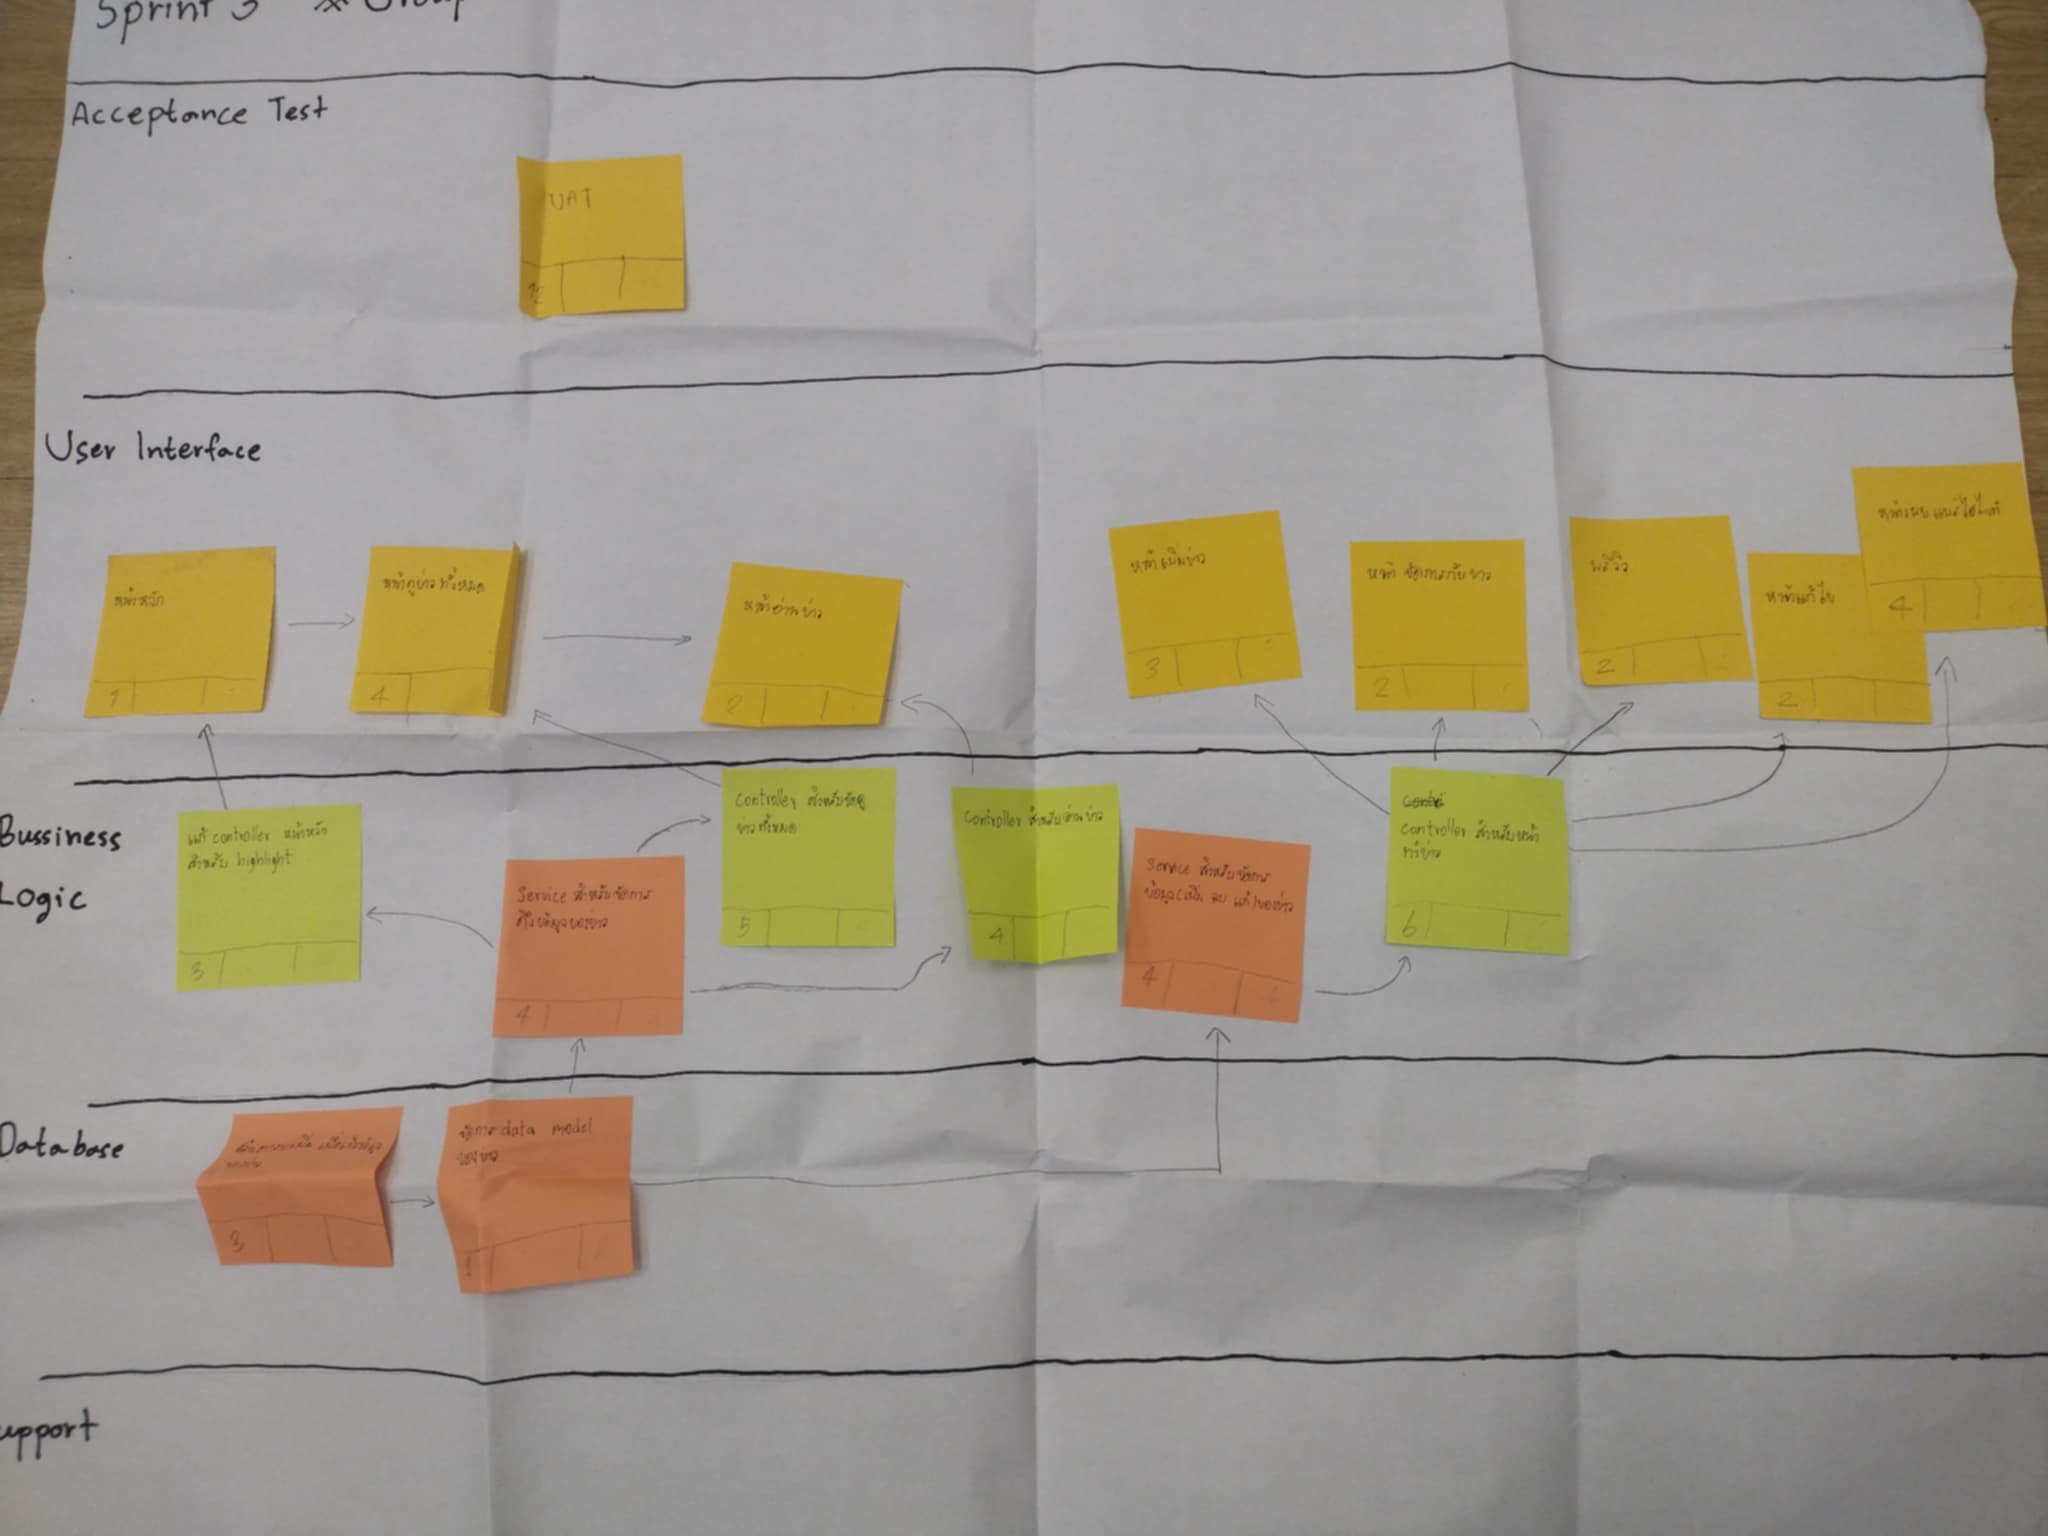 Sprint 3
Acceptance Test
UAT
12
User Interface
หน้าหลัก
1
หน้าดูข่าวทั้งหมด
4
หน้าอ่านข่าว
2
หน้าเพิ่มข่าว
3
หน้าจัดการกับข่าว
2
พรีวิว
2
หน้าแก้ไข
2
4
Bussiness
Logic
แก้ controller หน้าหลัก
สำหรับ highlight
3
Service สำหรับจัดการ
ดึงข้อมูลของข่าว
4
Controller สำหรับ
ข่าวทั้งหมด
5
Controller สำหรับอ่านข่าว
4
Service สำหรับจัดการ
ข้อมูล(เพิ่ม ลบ แก้)ของข่าว
4
Controller สำหรับหน้า
ข่าว
6
Database
3
จัดการ data model
ของข่าว
1
upport